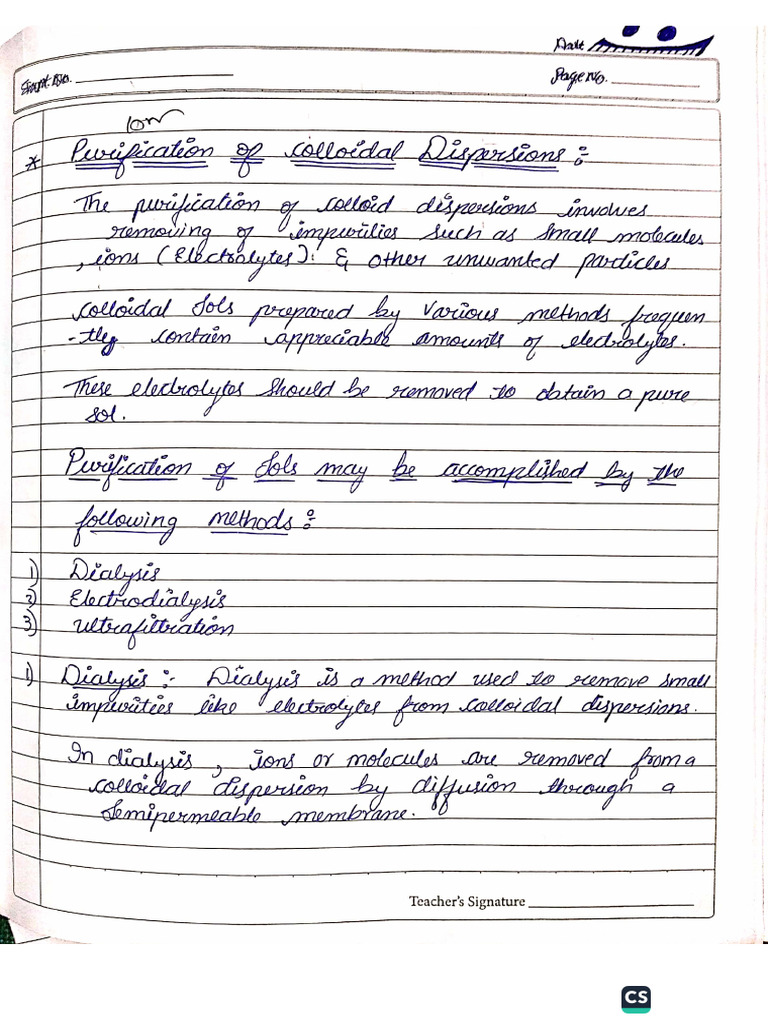 Date
Expt. No.
Page No.
10m
* Purification of colloidal Dispersions :
The purification of colloid dispersions involves
removing of impurities such as small molecules
, ions (Electrolytes). & other unwanted particles
colloidal Sols prepared by various methods frequen
-tly contain appreciable amounts of electrolytes.
These electrolytes should be removed to obtain a pure
sol.
Purification of Sols may be accomplished by the
following methods :
1) Dialysis
2) Electrodialysis
3) Ultrafiltration
1) Dialysis :- Dialysis is a method used to remove small
impurities like electrolytes from colloidal dispersions.
In dialysis, ions or molecules are removed from a
colloidal dispersion by diffusion through a
Semipermeable membrane.
Teacher's Signature
CS